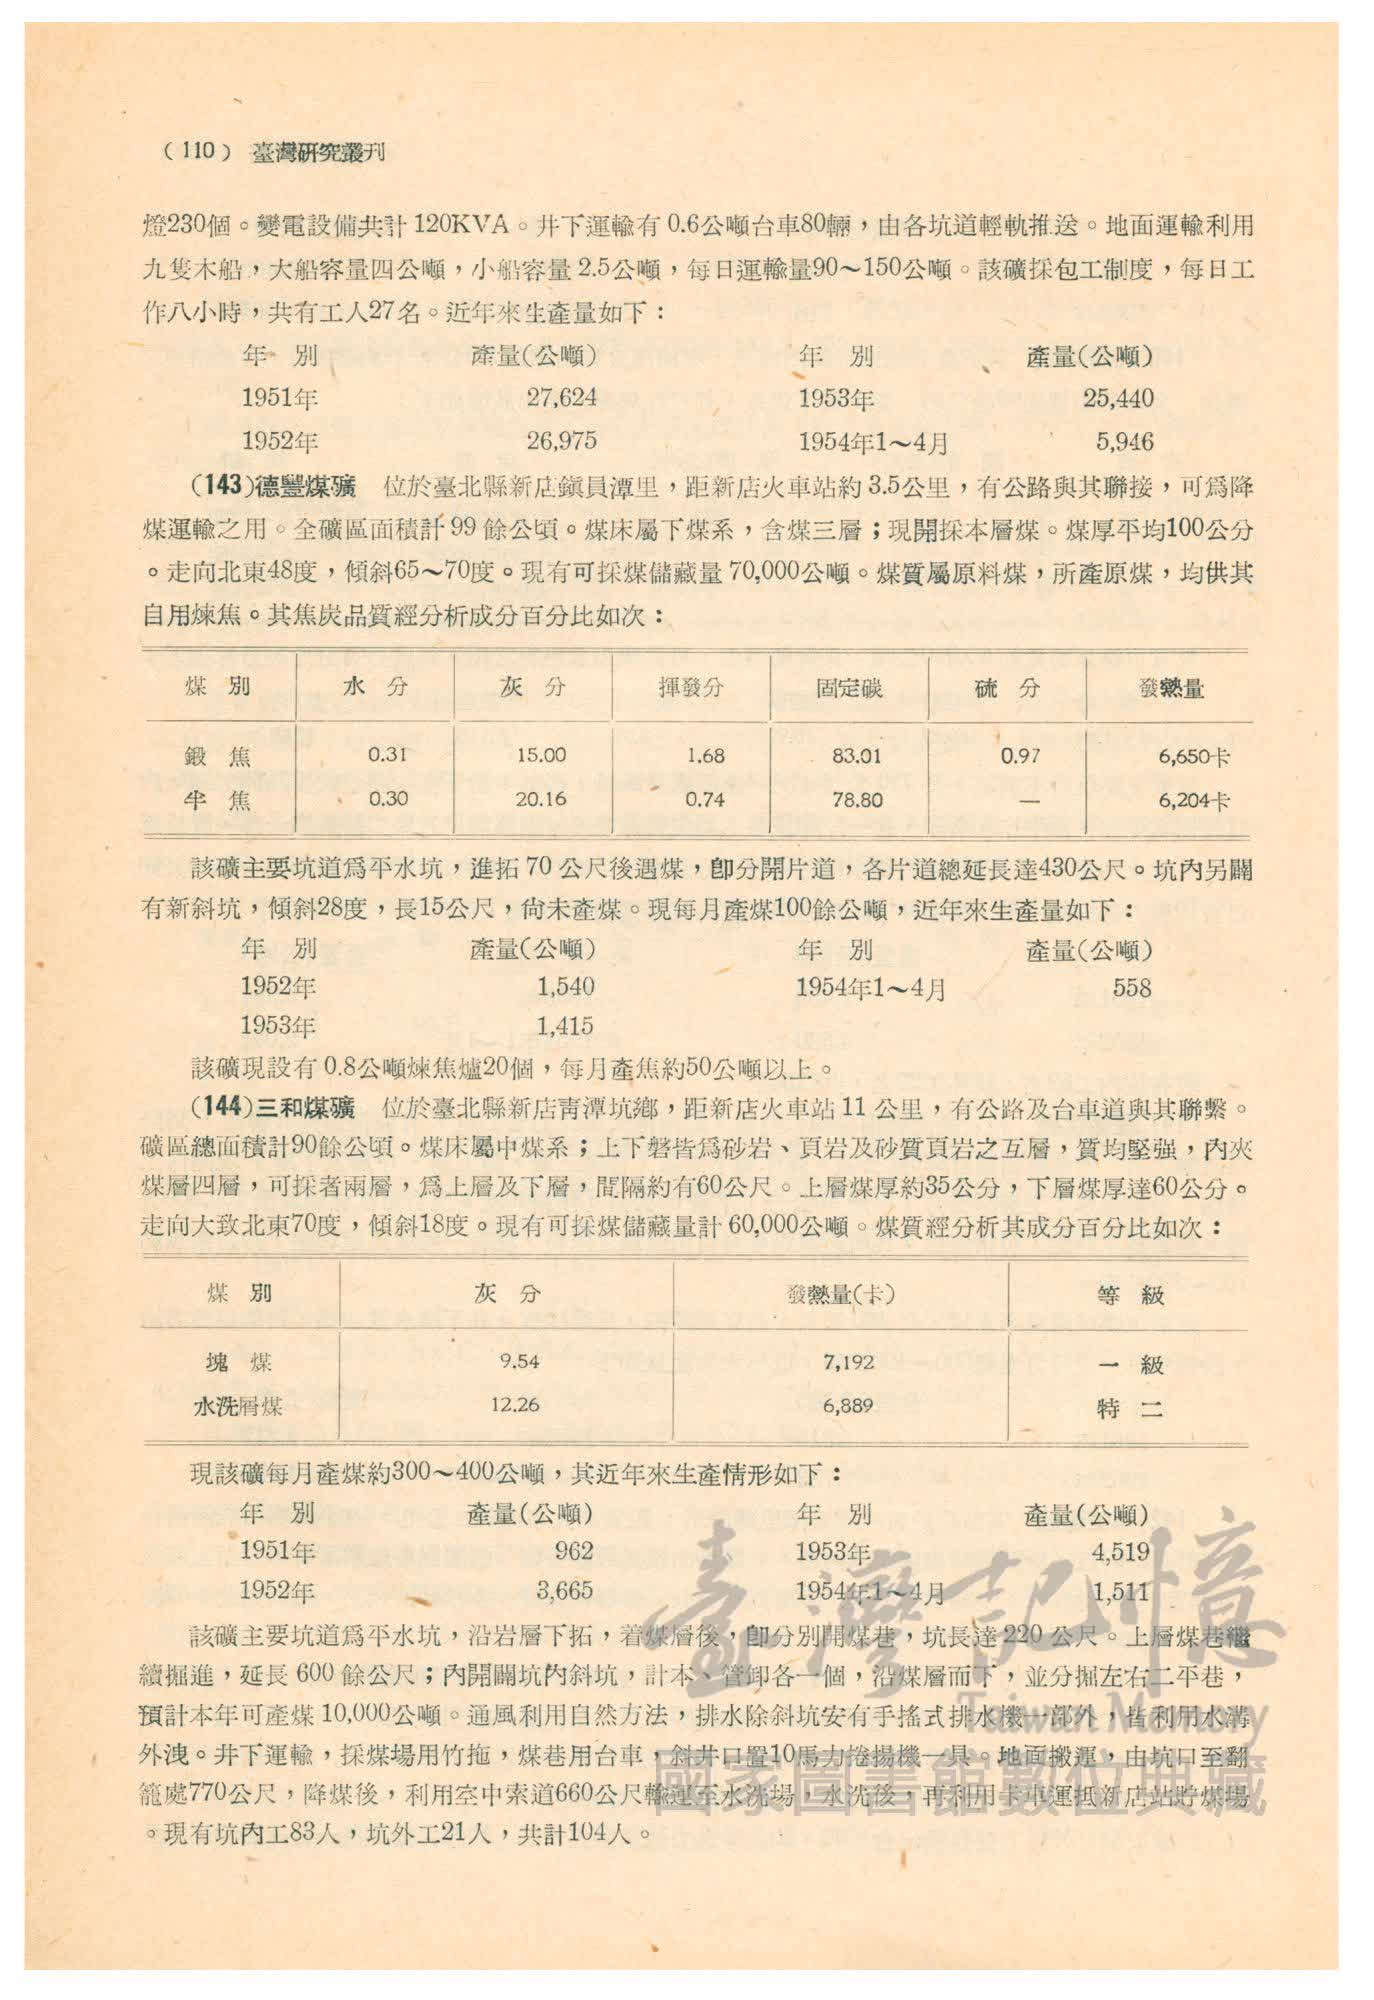 (110) 臺灣研究叢刊
燈230個。變電設備共計120KVA。井下運輸有0.6公噸台車80輛,由各坑道輕軌推送。地面運輸利用
九隻木船,大船容量四公噸,小船容量2.5公噸,每日運輸量90～150公噸。該礦採包工制度,每日工
作八小時,共有工人27名。近年來生產量如下:
年 別 產量(公噸) 年 別 產量(公噸)
1951年 27,624 1953年 25,440
1952年 26,975 1954年1～4月 5,946
(143)德豐煤礦 位於臺北縣新店鎮員潭里,距新店火車站約3.5公里,有公路與其聯接,可爲降
煤運輸之用。全礦區面積計99餘公頃。煤床屬下煤系,含煤三層;現開採本層煤。煤厚平均100公分
。走向北東48度,傾斜65～70度。現有可採煤儲藏量70,000公噸。煤質屬原料煤,所產原煤,均供其
自用煉焦。其焦炭品質經分析成分百分比如次:
煤 別 水 分 灰 分 揮發分 固定碳 硫 分 發熱量
鍛 焦 0.31 15.00 1.68 83.01 0.97 6,650卡
半 焦 0.30 20.16 0.74 78.80 — 6,204卡
該礦主要坑道爲平水坑,進拓70公尺後遇煤,卽分開片道,各片道總延長達430公尺。坑內另闢
有新斜坑,傾斜28度,長15公尺,尚未產煤。現每月產煤100餘公噸,近年來生產量如下:
年 別 產量(公噸) 年 別 產量(公噸)
1952年 1,540 1954年1～4月 558
1953年 1,415
該礦現設有0.8公噸煉焦爐20個,每月產焦約50公噸以上。
(144)三和煤礦 位於臺北縣新店靑潭坑鄉,距新店火車站11公里,有公路及台車道與其聯繫。
礦區總面積計90餘公頃。煤床屬中煤系;上下磐皆爲砂岩、頁岩及砂質頁岩之互層,質均堅强,內夾
煤層四層,可採者兩層,爲上層及下層,間隔約有60公尺。上層煤厚約35公分,下層煤厚達60公分。
走向大致北東70度,傾斜18度。現有可採煤儲藏量計60,000公噸。煤質經分析其成分百分比如次:
煤 別 灰 分 發熱量(卡) 等 級
塊 煤 9.54 7,192 一 級
水洗屑煤 12.26 6,889 特 二
現該礦每月產煤約300～400公噸,其近年來生產情形如下:
年 別 產量(公噸) 年 別 產量(公噸)
1951年 962 1953年 4,519
1952年 3,665 1954年1～4月 1,511
該礦主要坑道爲平水坑,沿岩層下拓,着煤層後,卽分別開煤巷,坑長達220公尺。上層煤巷繼
續掘進,延長600餘公尺;內開闢坑內斜坑,計本、管卸各一個,沿煤層而下,並分掘左右二平巷,
預計本年可產煤10,000公噸。通風利用自然方法,排水除斜坑安有手搖式排水機一部外,皆利用水溝
外洩。井下運輸,採煤場用竹拖,煤巷用台車,斜井口置10馬力捲揚機一具。地面搬運,由坑口至翻
籠處770公尺,降煤後,利用空中索道660公尺輸運至水洗場,水洗後,再利用卡車運抵新店站貯煤場
。現有坑內工83人,坑外工21人,共計104人。
臺灣記憶
Taiwan Memory
國家圖書館數位典藏